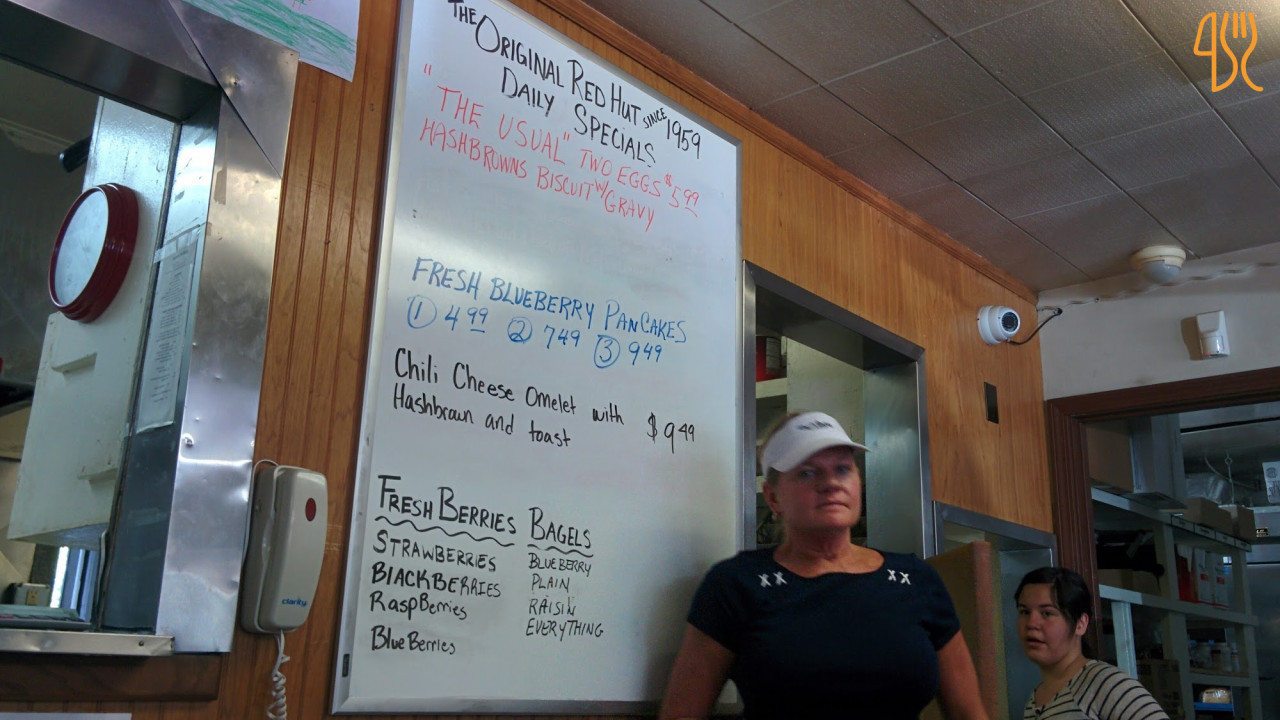 THE ORIGINAL RED HUT SINCE 1959
DAILY SPECIALS
"THE USUAL" TWO EGGS $5.99
HASHBROWNS BISCUIT W/ GRAVY
FRESH BLUEBERRY PANCAKES
① 4 99 ② 7 49 ③ 9 49
Chili Cheese Omelet with $9 49
Hashbraun and toast
FRESH BERRIES
STRAWBERRIES
BlACKBERRIES
RaspBerries
BlueBerries
BAGELS
BLUEBERRY
PLAIN
RAISIN
EVERYTHING
clarity